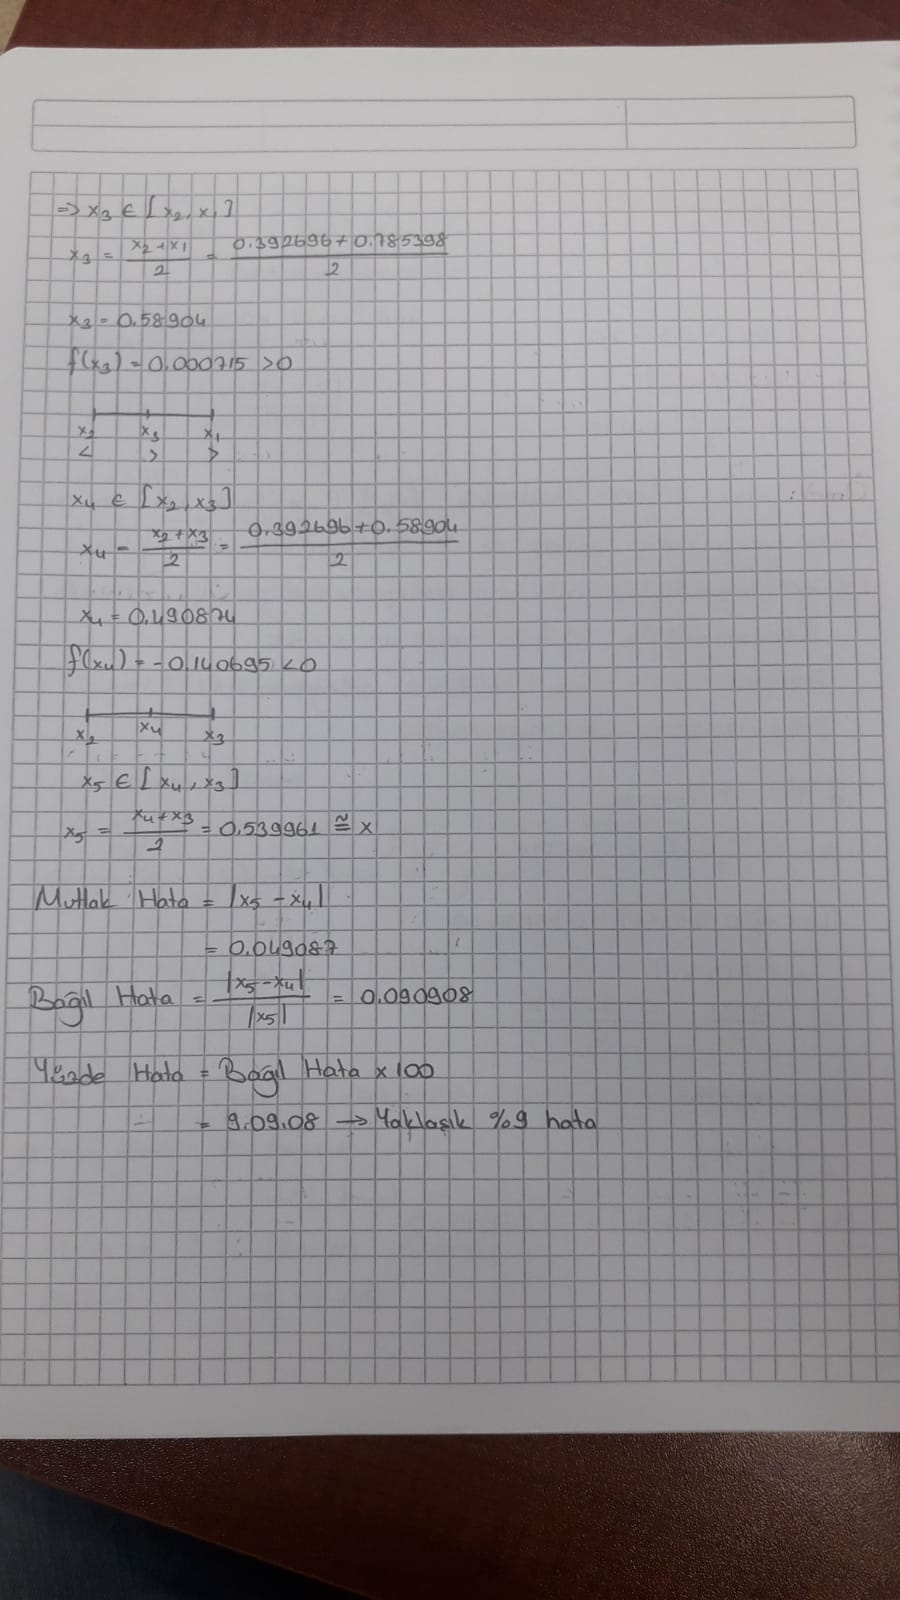 => x₃ ∈ [x₂, x₁]
x₃ = (x₂+x₁)/2 = (0.392696+0.785398)/2
x₃ = 0.58904
f(x₃) = 0.000715 >0
x₂ x₃ x₁
< > >
x₄ ∈ [x₂, x₃]
x₄ = (x₂+x₃)/2 = (0.392696+0.58904)/2
x₄ = 0.490874
f(x₄) = -0.140695 <0
x₂ x₄ x₃
x₅ ∈ [x₄, x₃]
x₅ = (x₄+x₃)/2 = 0.539961 ≅ x
Mutlak Hata = |x₅ - x₄|
= 0.049087
Bağıl Hata = |x₅-x₄|/|x₅| = 0.090908
Yüzde Hata = Bağıl Hata x 100
= 9.09.08 → Yaklaşık %9 hata